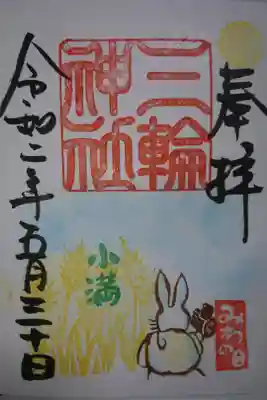 奉拝
三輪
神社
令和二年五月二十日
小満
みわの日